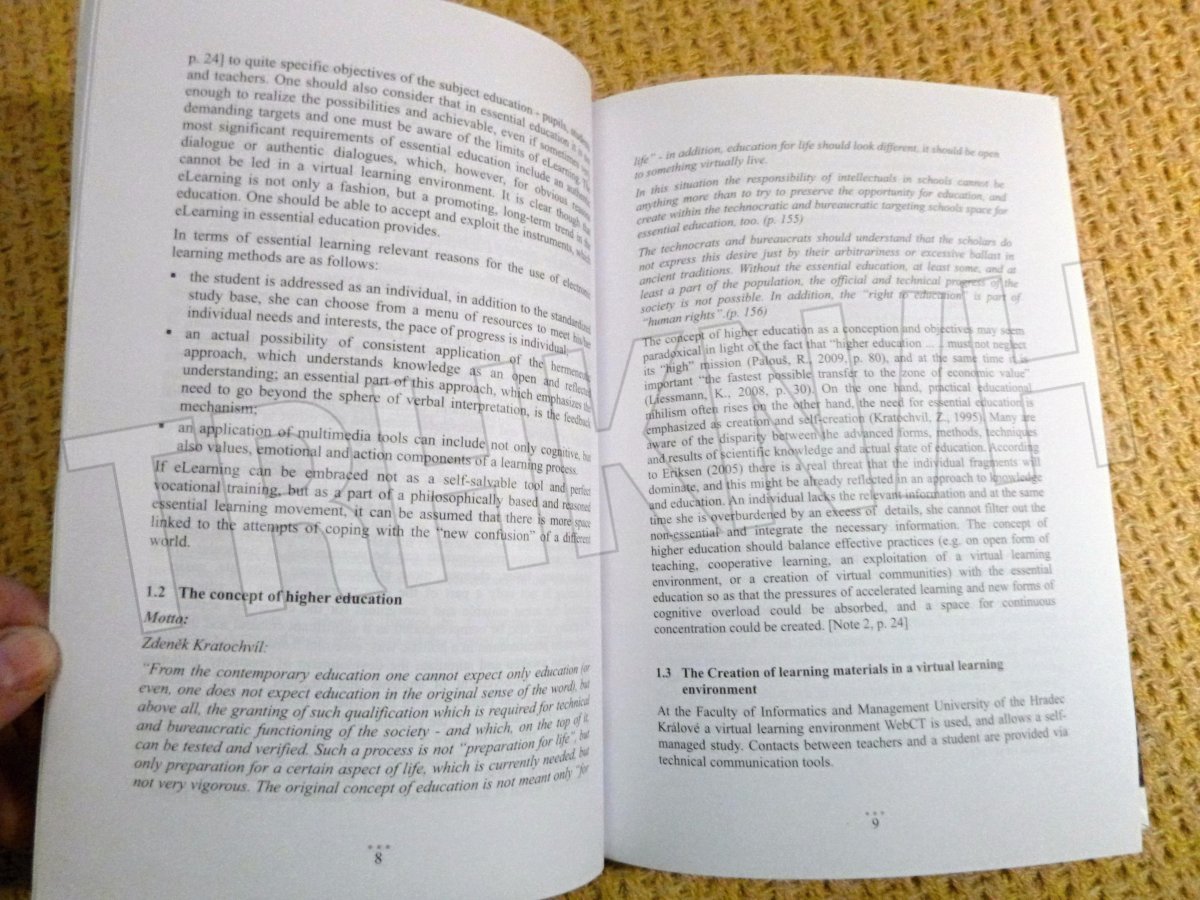 p. 24] to quite specific objectives of the subject education - pupils, students
and teachers. One should also consider that in essential education it is not
enough to realize the possibilities and achievable, even if sometimes very
demanding targets and one must be aware of the limits of eLearning. The
most significant requirements of essential education include an authentic
dialogue or authentic dialogues, which, however, for obvious reasons
cannot be led in a virtual learning environment. It is clear though that
eLearning is not only a fashion, but a promoting, long-term trend in the
education. One should be able to accept and exploit the instruments, which
eLearning in essential education provides.
In terms of essential learning relevant reasons for the use of electronic
learning methods are as follows:
▪ the student is addressed as an individual, in addition to the standardized
study base, she can choose from a menu of resources to meet his/her
individual needs and interests, the pace of progress is individual;
▪ an actual possibility of consistent application of the hermeneutic
approach, which understands knowledge as an open and reflected
understanding; an essential part of this approach, which emphasizes the
need to go beyond the sphere of verbal interpretation, is the feedback
mechanism;
▪ an application of multimedia tools can include not only cognitive, but
also values, emotional and action components of a learning process.
If eLearning can be embraced not as a self-salvable tool and perfect
vocational training, but as a part of a philosophically based and reasoned
essential learning movement, it can be assumed that there is more space
linked to the attempts of coping with the “new confusion” of a different
world.
1.2 The concept of higher education
Motto:
Zdeněk Kratochvíl:
“From the contemporary education one cannot expect only education (or
even, one does not expect education in the original sense of the word), but
above all, the granting of such qualification which is required for technical
and bureaucratic functioning of the society - and which, on the top of it,
can be tested and verified. Such a process is not “preparation for life”, but
only preparation for a certain aspect of life, which is currently needed, but
not very vigorous. The original concept of education is not meant only “for
8
life” - in addition, education for life should look different, it should be open
to something virtually live.
In this situation the responsibility of intellectuals in schools cannot be
anything more than to try to preserve the opportunity for education, and
create within the technocratic and bureaucratic targeting schools space for
essential education, too. (p. 155)
The technocrats and bureaucrats should understand that the scholars do
not express this desire just by their arbitrariness or excessive ballast in
ancient traditions. Without the essential education, at least some, and at
least a part of the population, the official and technical progress of the
society is not possible. In addition, the “right to education” is part of
“human rights”.(p. 156)
The concept of higher education as a conception and objectives may seem
paradoxical in light of the fact that “higher education ... must not neglect
its “high” mission (Palouš, R., 2009, p. 80), and at the same time it is
important “the fastest possible transfer to the zone of economic value”
(Liessmann, K., 2008, p. 30). On the one hand, practical educational
nihilism often rises on the other hand, the need for essential education is
emphasized as creation and self-creation (Kratochvíl, Z., 1995). Many are
aware of the disparity between the advanced forms, methods, techniques
and results of scientific knowledge and actual state of education. According
to Eriksen (2005) there is a real threat that the individual fragments will
dominate, and this might be already reflected in an approach to knowledge
and education. An individual lacks the relevant information and at the same
time she is overburdened by an excess of details, she cannot filter out the
non-essential and integrate the necessary information. The concept of
higher education should balance effective practices (e.g. on open form of
teaching, cooperative learning, an exploitation of a virtual learning
environment, or a creation of virtual communities) with the essential
education so as that the pressures of accelerated learning and new forms of
cognitive overload could be absorbed, and a space for continuous
concentration could be created. [Note 2, p. 24]
1.3 The Creation of learning materials in a virtual learning
environment
At the Faculty of Informatics and Management University of the Hradec
Králové a virtual learning environment WebCT is used, and allows a self-
managed study. Contacts between teachers and a student are provided via
technical communication tools.
9
TRHKNIH